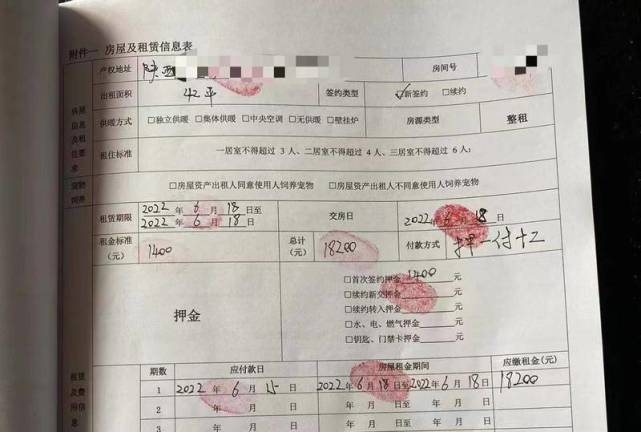 附件一 房屋及租赁信息表
产权地址 陕西 房间号
出租面积 42平 签约类型 ☑新签约 □续约
供暖方式 □独立供暖 □集体供暖 □中央空调 □无供暖 □壁挂炉 房源类型 整租
租住标准 一居室不得超过 3 人、二居室不得超过 4 人、三居室不得超过 6 人;
□房屋资产出租人同意使用人饲养宠物 □房屋资产出租人不同意使用人饲养宠物
租赁期限 2022 年 6 月 18 日至 2022 年 6 月 18 日 交房日 2022 年 6 月 18 日
租金标准(元) 1400 总计(元) 18200 付款方式 押一付十二
押金
□首次签约押金 1400 元
□续约新交押金 元
□续约转入押金 元
□水、电、燃气押金 元
□钥匙、门禁卡押金 元
期数 应付款日 房屋租金期间 应缴租金(元)
1 2022 年 6 月 15 日 2022 年 6 月 18 日至 2022 年 6 月 18 日 18200
2 年 月 日 年 月 日至 年 月 日
3 年 月 日 年 月 日至 年 月 日